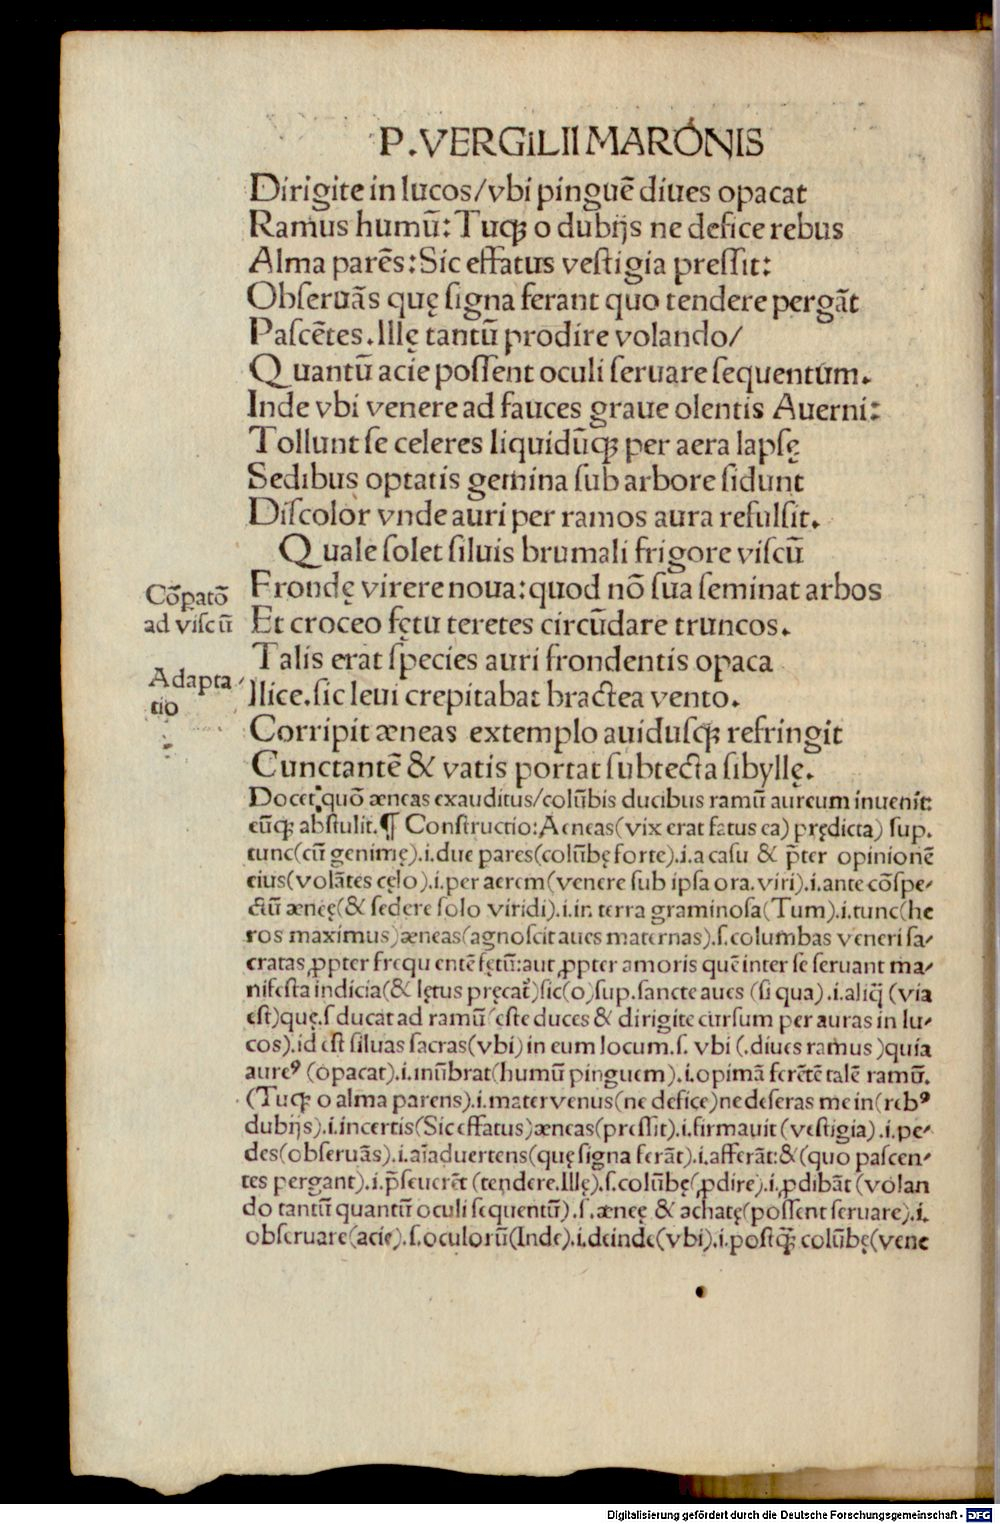 P.VERGILII MARONIS
Dirigite in lucos/vbi pinguē diues opacat
Ramus humū: Tuqꝫ o dubijs ne defice rebus
Alma parēs: Sic effatus veſtigia preſſit:
Obſeruās quę ſigna ferant quo tendere pergāt
Paſcētes. Illę tantū prodire volando/
Quantū acie poſſent oculi ſeruare ſequentum.
Inde vbi venere ad fauces graue olentis Auerni:
Tollunt ſe celeres liquidūqꝫ per aera lapſę
Sedibus optatis gemina ſub arbore ſidunt
Diſcolor vnde auri per ramos aura refulſit.
Quale ſolet ſiluis brumali frigore viſcū
Frondę virere noua: quod nō ſua ſeminat arbos
Et croceo fętu teretes circūdare truncos.
Talis erat ſpecies auri frondentis opaca
Ilice. ſic leui crepitabat bractea vento.
Corripit æneas extemplo auiduſqꝫ refringit
Cunctantē & vatis portat ſub tecta ſibyllę.
Cōꝑatō
ad viſcū
Adapta/
tio
Docet quō æneas exauditus/colūbis ducibus ramū aureum inuenit:
eūqꝫ abſtulit.¶ Conſtructio: Aeneas(vix erat fatus ea) prędicta) ſup.
tunc(cū genimę).i.due pares(colūbę forte).i.a caſu & p̄ter opinionē
eius(volātes cęlo).i.per aerem(venere ſub ipſa ora.viri).i.ante cōſpe/
ctū æneę(& ſedere ſolo viridi).i.in terra graminoſa(Tum).i.tunc(he
ros maximus)æneas(agnoſcit aues maternas).ſ.columbas veneri ſa/
cratas ꝓpter frequentē fętū: aut ꝓpter amoris quē inter ſe ſeruant ma/
nifeſta indicia(& lętus pręcat᷑)ſic(o)ſup.ſancte aues (ſi qua).i.aliq̄ (via
eſt)quę.ſ ducat ad ramū (eſte duces & dirigite curſum per auras in lu/
cos).id eſt ſiluas ſacras(vbi)in eum locum.ſ. vbi (.diues ramus )quia
aureꝰ (opacat).i.inūbrat(humū pinguem).i.opimā ferētē talē ramū.
(Tuqꝫ o alma parens).i.mater venus(ne defice)ne deſeras me in(rebꝰ
dubijs).i.incertis(Sic effatus)æneas(preſſit).i.firmauit (veſtigia).i.pe/
des(obſeruās).i.aīaduertens(quę ſigna ferāt).i.afferāt:&(quo paſcen/
tes pergant).i.p̄ſeuerēt (tendere.Illę).ſ.colūbę(ꝓdire).i.ꝓdibāt (volan
do tantū quantū oculi ſequentū).ſ.æneę & achatę(poſſent ſeruare).i.
obſeruare(acie).ſ.oculorū(Inde).i.deinde(vbi).i.poſtqꝫ̄ colūbę(vene
Digitalisierung gefördert durch die Deutsche Forschungsgemeinschaft - DFG